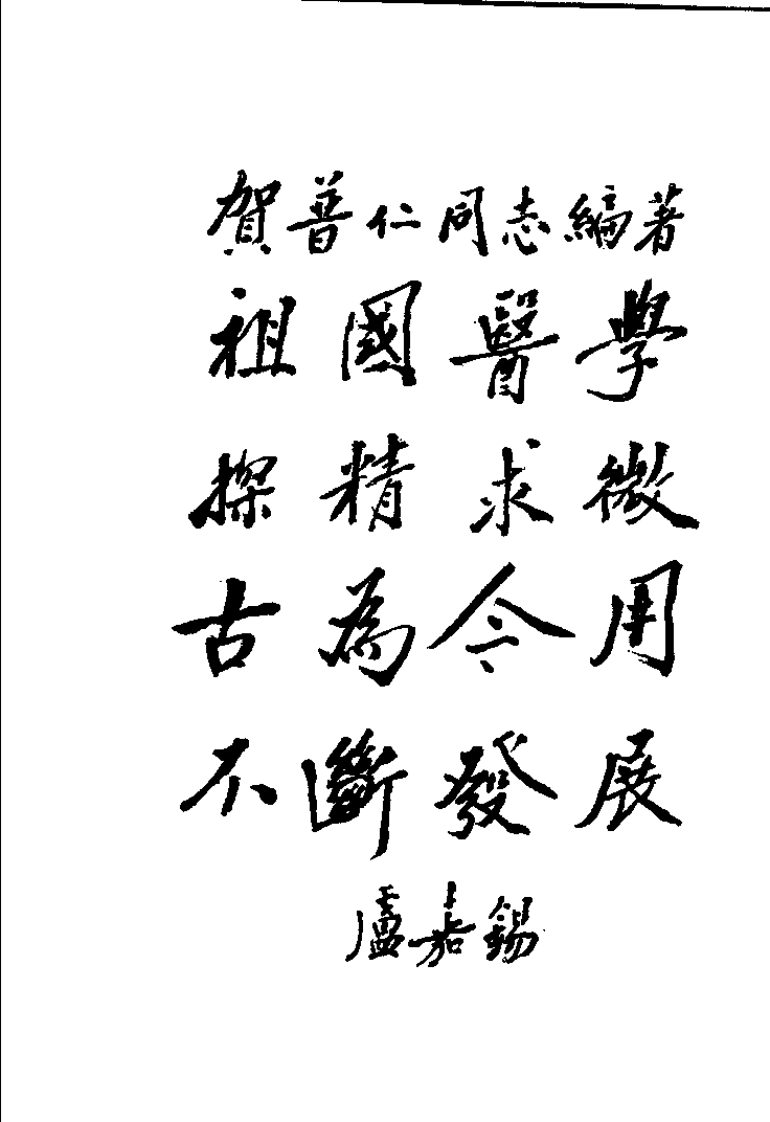 賀普仁同志編著
祖國醫學
探精求微
古為今用
不斷發展
盧嘉錫